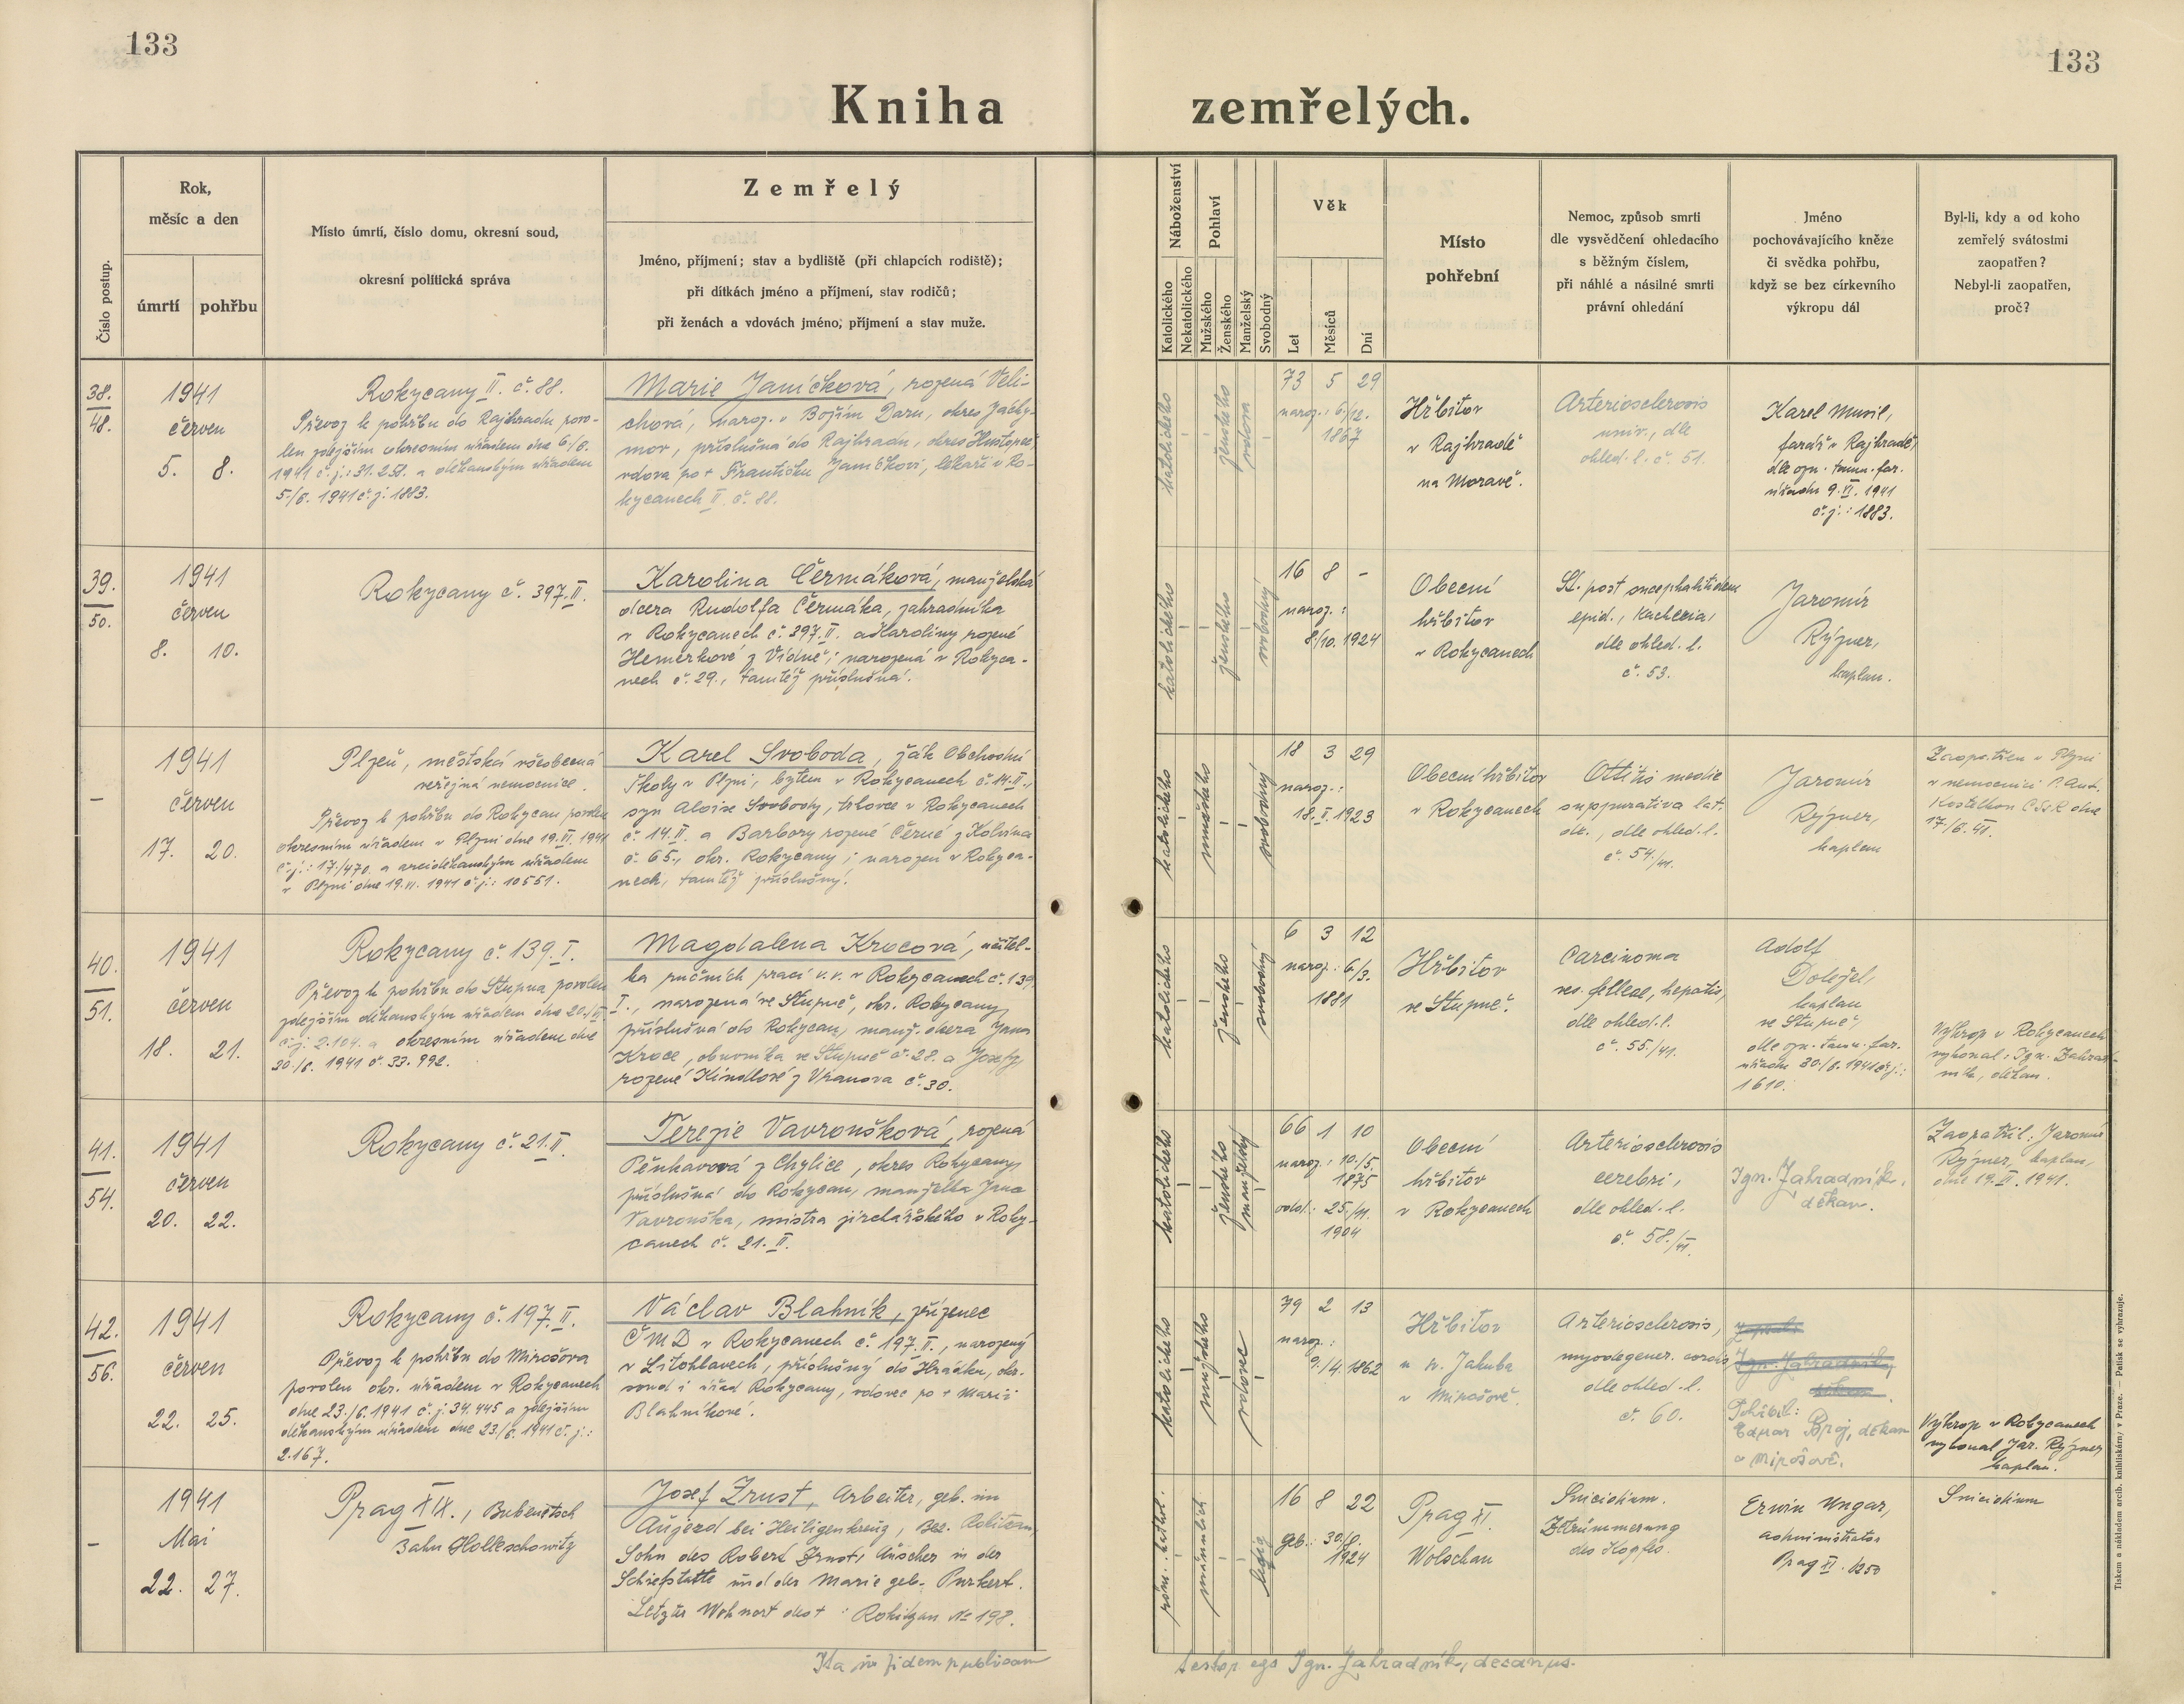 133
133
Kniha zemřelých.
Číslo postup.
Rok,
měsíc a den
úmrtí
pohřbu
Místo úmrtí, číslo domu, okresní soud,
okresní politická správa
Zemřelý
Jméno, příjmení; stav a bydliště (při chlapcích rodiště);
při dítkách jméno a příjmení, stav rodičů;
při ženách a vdovách jméno, příjmení a stav muže.
Náboženství
Katolického
Nekatolického
Pohlaví
Mužského
Ženského
Manželský
Svobodný
Věk
Let
Měsíců
Dní
Místo
pohřební
Nemoc, způsob smrti
dle vysvědčení ohledacího
s běžným číslem,
při náhlé a násilné smrti
právní ohledání
Jméno
pochovávajícího kněze
či svědka pohřbu,
když se bez církevního
výkropu dál
Byl-li, kdy a od koho
zemřelý svátostmi
zaopatřen?
Nebyl-li zaopatřen,
proč?
38.
48.
1941
červen
5. 8.
Rokycany II. č. 88.
Převoz k pohřbu do Rajhradu povo-
len zdejším okresním úřadem dne 6./6.
1941 č.j.: 31.251. a děkanským úřadem
5./6. 1941 č.j. 1883.
Marie Janíčková, rozená Veli-
chová, naroz. v Božím Daru, okres Jáchy-
mov, příslušná do Rajhradu, okres Hustopeč,
vdova po + Františku Janíčkovi, lékaři v Ro-
kycanech II. č. 88.
katolického
ženského
vdova
73 5 29
naroz.: 6./12.
1867
Hřbitov
v Rajhradě
na Moravě.
Arteriosclerosis
univ., dle
ohled. l. č. 51.
Karel Musil,
farář v Rajhradě,
dle ozn. tamn. far.
úřadu 9.VI. 1941
č.j.: 1883.
39.
50.
1941
červen
8. 10.
Rokycany č. 397.II.
Karolina Čermáková, manželská
dcera Rudolfa Čermáka, zahradníka
v Rokycanech č. 397.II. a Karoliny rozené
Hemerkové z Vídně; narozená v Rokyca-
nech č. 29., tamtéž příslušná.
katolického
ženského
svobodný
16 8 -
naroz.:
8./10. 1924
Obecní
hřbitov
v Rokycanech
St. post encephalitidem
epid., kachexia,
dle ohled. l.
č. 53.
Jaromír
Rýzner,
kaplan.
-
1941
červen
17. 20.
Plzeň, městská všeobecná
veřejná nemocnice.
Převoz k pohřbu do Rokycan povolen
okresním úřadem v Plzni dne 19.VI. 1941
č.j.: 17/470. a arciděkanským úřadem
v Plzni dne 19.VI. 1941 č.j.: 10551.
Karel Svoboda, žák Obchodní
školy v Plzni, bytem v Rokycanech č. 14.II.,
syn Aloise Svobody, trhovce v Rokycanech
č. 14.II. a Barbory rozené Černé z Kolvína
č. 65., okr. Rokycany; narozen v Rokyca-
nech, tamtéž příslušný.
katolického
mužského
svobodný
18 3 29
naroz.:
18.II.1923
Obecní hřbitov
v Rokycanech
Ottitis medie
suppurativa lat.
dle ohled. l.
č. 54./41.
Jaromír
Rýzner,
kaplan
Zaopatřen v Plzni
v nemocnici P. Ant.
Kostelkou CSsR dne
17./6. 41.
40.
51.
1941
červen
18. 21.
Rokycany č. 139.I.
Převoz k pohřbu do Stupna povolen
zdejším děkanským úřadem dne 20./VI.
č.j. 2.104. a okresním úřadem dne
20./6. 1941 č. 33.992.
Magdalena Krocová, učitel-
ka ručních prací v.v. v Rokycanech č. 139.
I., narozená ve Stupně, okr. Rokycany,
příslušná do Rokycan, manž. dcera Jana
Kroce, obuvníka ve Stupně č. 28. a Josefy,
rozené Kindlové z Vranova č. 30.
katolického
ženského
svobodný
6 3 12
naroz.: 6./3.
1881
Hřbitov
ve Stupně.
Carcinoma
ves. felleae, hepatis,
dle ohled. l.
č. 55./41.
Adolf
Doležel,
kaplan
ve Stupně,
dle ozn. tamn. far.
úřadu 30./6. 1941 č.j.:
1610.
Výkrop v Rokycanech
vykonal: Ign. Zahrad-
ník, děkan.
41.
54.
1941
červen
20. 22.
Rokycany č. 21.II.
Terezie Vavroušková, rozená
Pěnkavová z Chylice, okres Rokycany,
příslušná do Rokycan, manželka Jana
Vavrouška, mistra jirchářského v Roky-
canech č. 21.II.
katolického
ženského
manželský
66 1 10
naroz.: 10./5.
1875
odd.: 25./11.
1904
Obecní
hřbitov
v Rokycanech
Arteriosclerosis
cerebri,
dle ohled. l.
č. 58./VI.
Ign. Zahradník,
děkan.
Zaopatřil: Jaromír
Rýzner, kaplan,
dne 19.VI. 1941.
42.
56.
1941
červen
22. 25.
Rokycany č. 197.II.
Převoz k pohřbu do Mirošova
povolen okr. úřadem v Rokycanech
dne 23./6. 1941 č.j. 34.445 a zdejším
děkanským úřadem dne 23./6. 1941 č.j.:
2.167.
Václav Blahník, zřízenec
ČMD v Rokycanech č. 197.II., narozený
v Litohlavech, příslušný do Hrádku, okr.
soud i úřad Rokycany, vdovec po + Marii
Blahníkové.
katolického
mužského
vdovec
79 2 13
naroz.:
9./4. 1862
Hřbitov
u sv. Jakuba
v Mirošově.
Arteriosclerosis,
myodegener. cordis
dle ohled. l.
č. 60.
Ign. Zahradník,
děkan
Pohřbil:
Edmar Broj, děkan
v Mirošově.
Výkrop v Rokycanech
vykonal Jar. Rýzner,
kaplan.
-
1941
Mai
22. 27.
Prag XIX., Bubentsch
Bahn Holleschowitz
Josef Zrust, Arbeiter, geb. in
Aujezd bei Heiligenkreuz, Bez. Rokitzan,
Sohn des Robert Zrust, in der
und der Marie geb. Purkert.
Letzter Wohnort des + : Rokitzan № 198.
röm. kathol.
männlich
ledig
16 8 22
geb.: 30/8.
1924
Prag XI.
Wolschan
Suicidium.
Zertrümmerung
des Kopfes.
Erwin Ungar,
administrator
Prag XI. 1250
Suicidium
Ita in fidem publicam
testor ego Ign. Zahradník, decanus.
Tiskem a nákladem arcib. knihtiskárny v Praze. — Patisk se vyhrazuje.